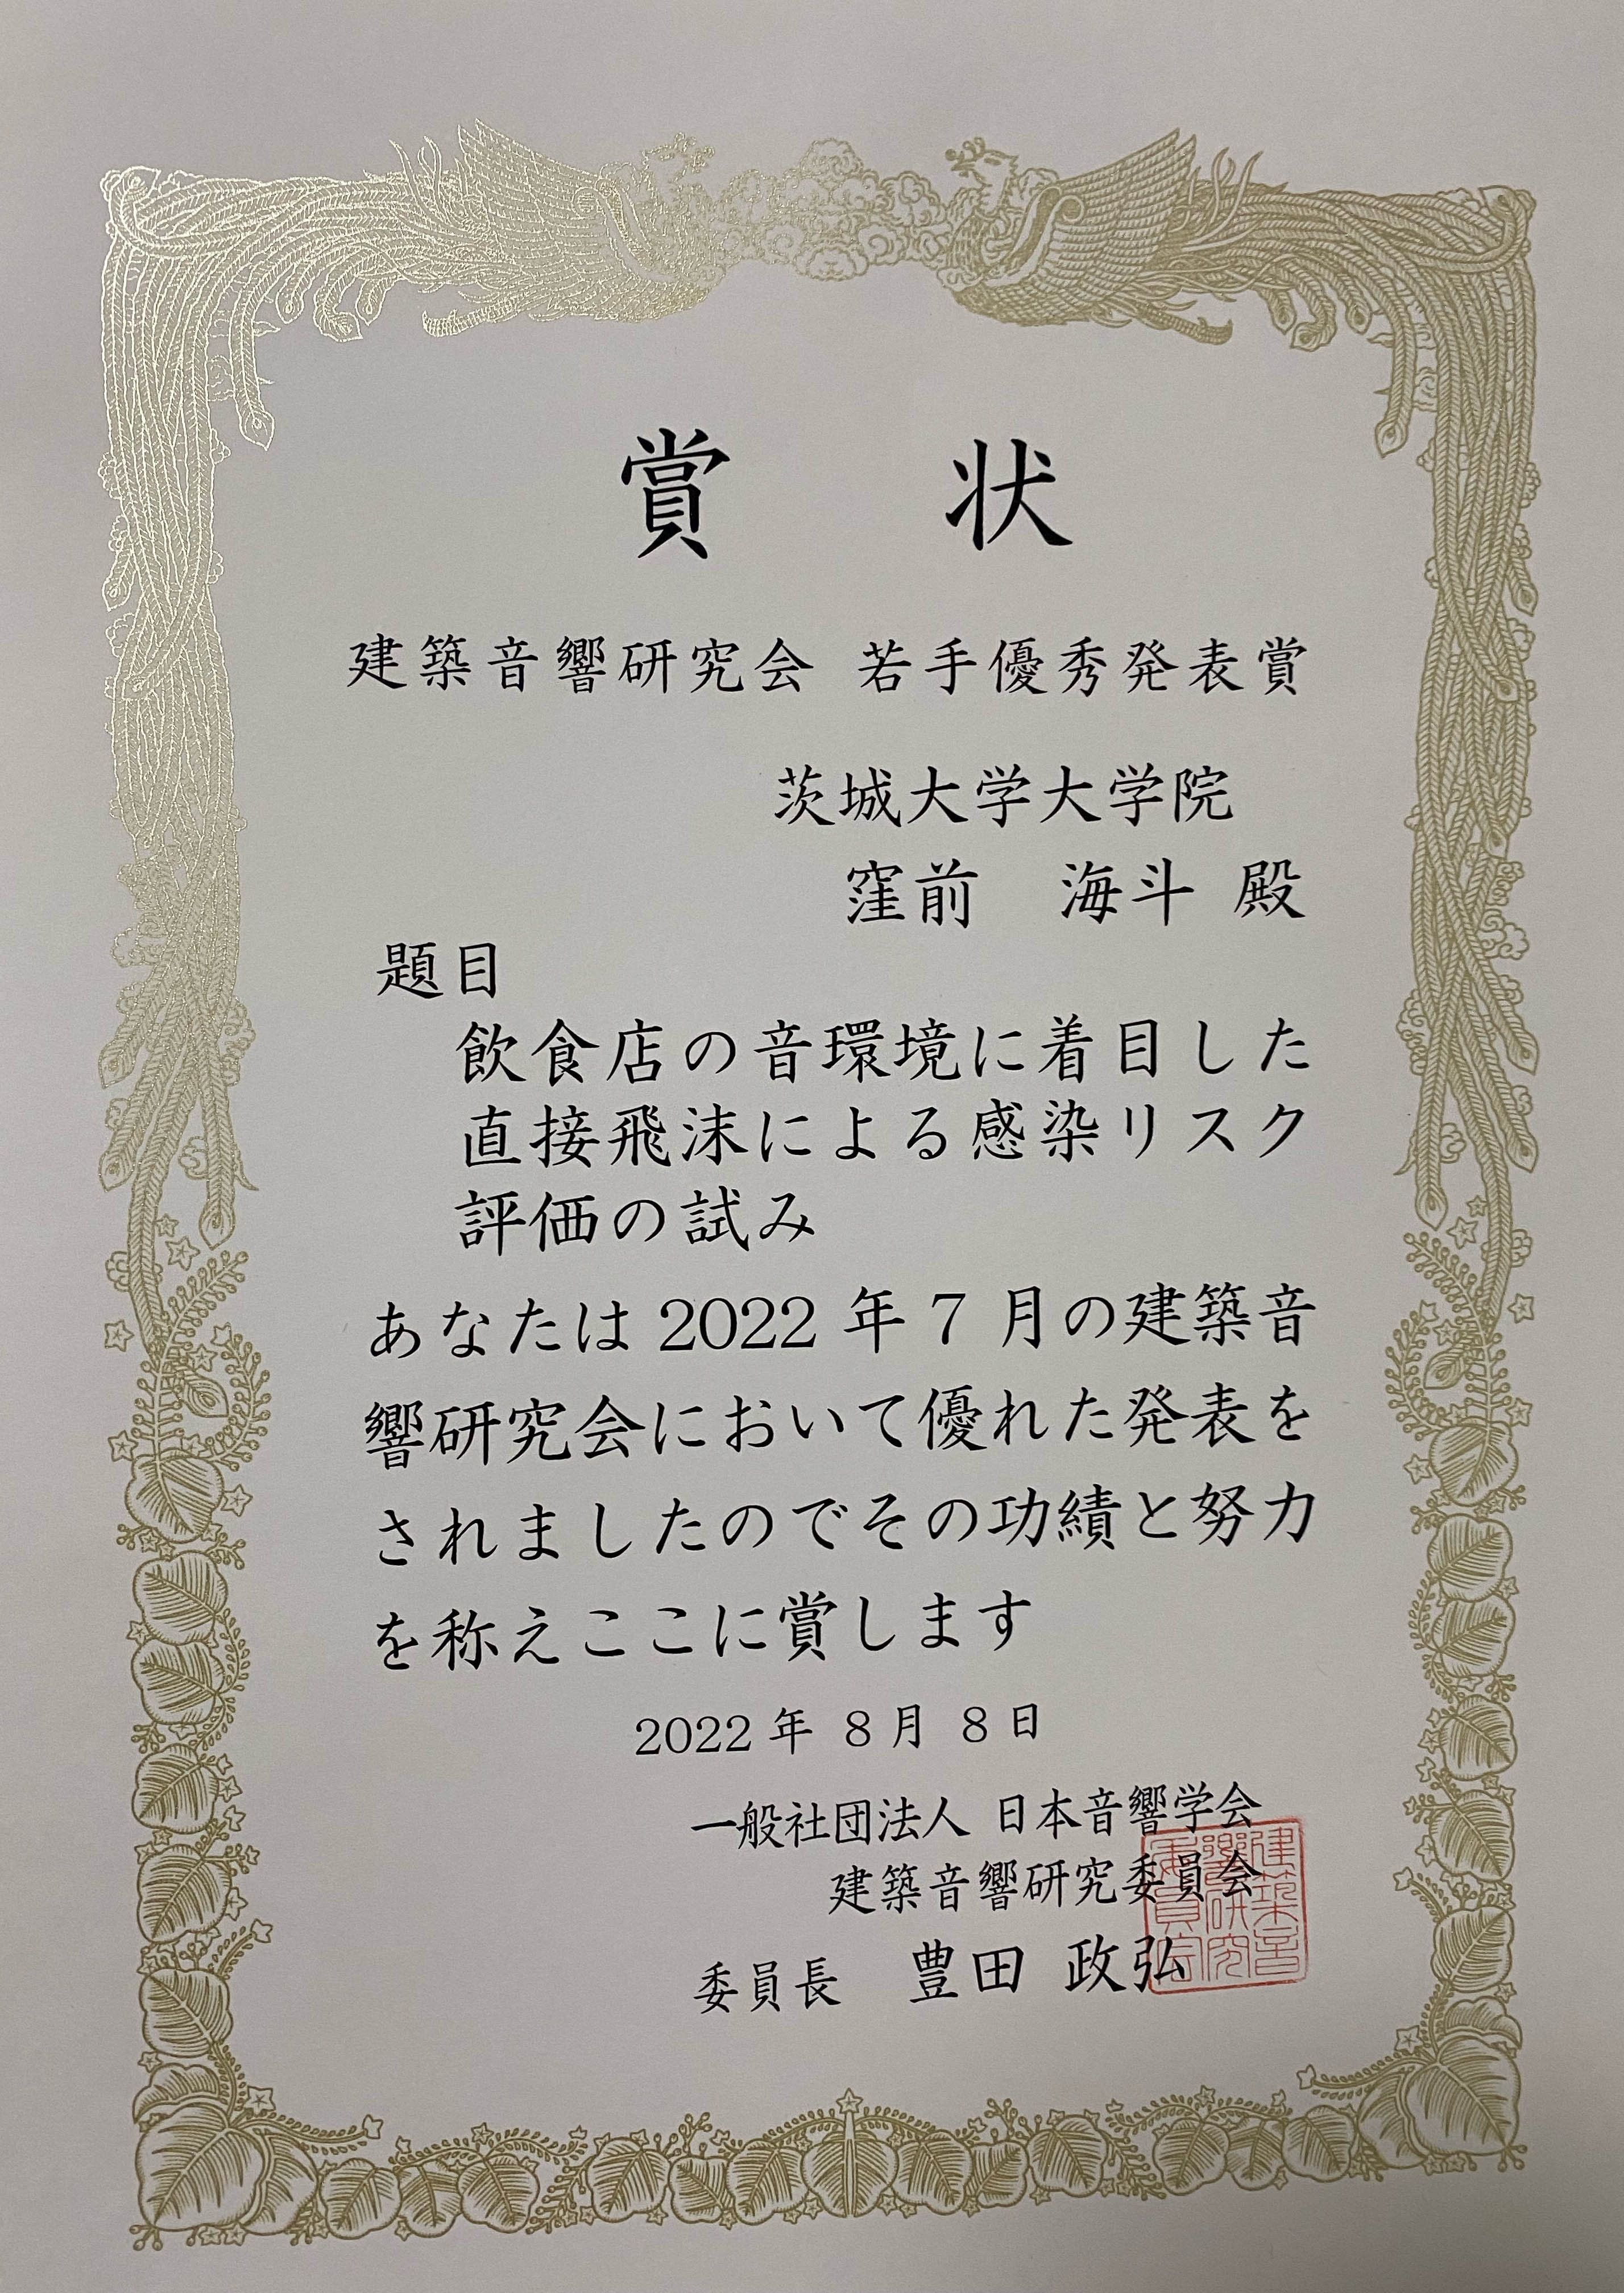 賞 状
建築音響研究会 若手優秀発表賞
茨城大学大学院
窪前 海斗 殿
題目
飲食店の音環境に着目した
直接飛沫による感染リスク
評価の試み
あなたは2022年7月の建築音
響研究会において優れた発表を
されましたのでその功績と努力
を称えここに賞します
2022年 8月 8日
一般社団法人 日本音響学会
建築音響研究委員会
委員長 豊田 政弘
建築音
響研究
委員会